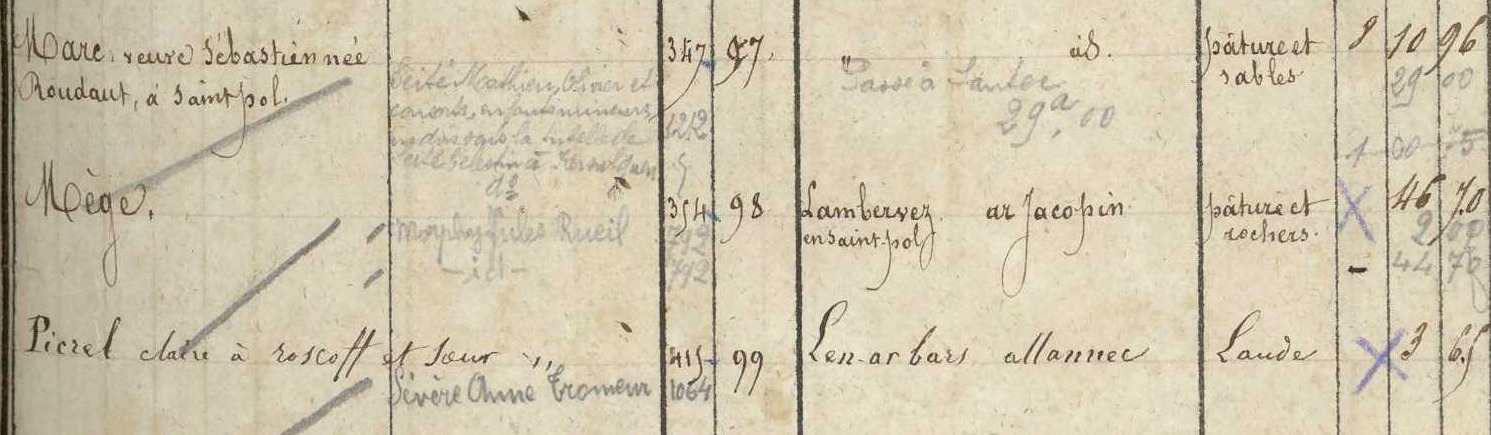 Marc, veuve Sébastien née 347. 97. id. pâture et 8 10 96
Roudaut, à Saint pol. sables 29 00
Seité Mathieu, Olivier et Passé à Santec
enfants mineurs 1212 29a,00
la tutelle de
1 00 75
do
Mège. 354 98 Lambervez ar Jacopin pâture et X 46 70
en Saint-pol rochers. 2 00
Jules Rueil 792
- id - 792 - 44 70
Picrel claire à roscoff et Sœur ,, 415 99 Len ar bars allannec Laude X 3 65
Sévère Anne Tromeur 1064